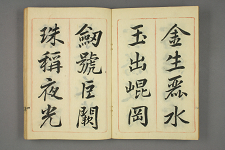 金生麗水
玉出崐岡
劒號巨闕
珠稱夜光